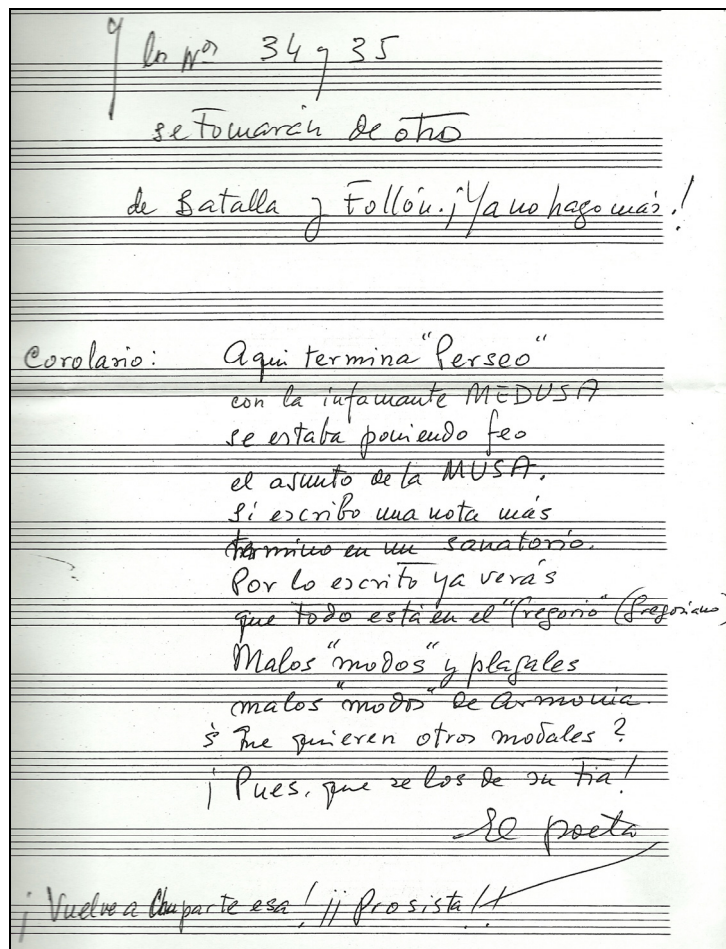 y los Nos 34 y 35
se tomarán de otro
de Batalla y Follón. ¡Ya no hago más!
Corolario: Aqui termina "Perseo"
con la infamante MEDUSA
se estaba poniendo feo
el asunto de la MUSA.
Si escribo una nota más
termino en un sanatorio.
Por lo escrito ya verás
que todo está en el "Gregorio" (gregoriano)
Malos "modos" y plagales
malos "modos" de armonia.
¿Que quieren otros modales?
¡Pues, que se los de su tia!
El poeta
¡Vuelve a Chuparte esa! ¡¡Prosista!!